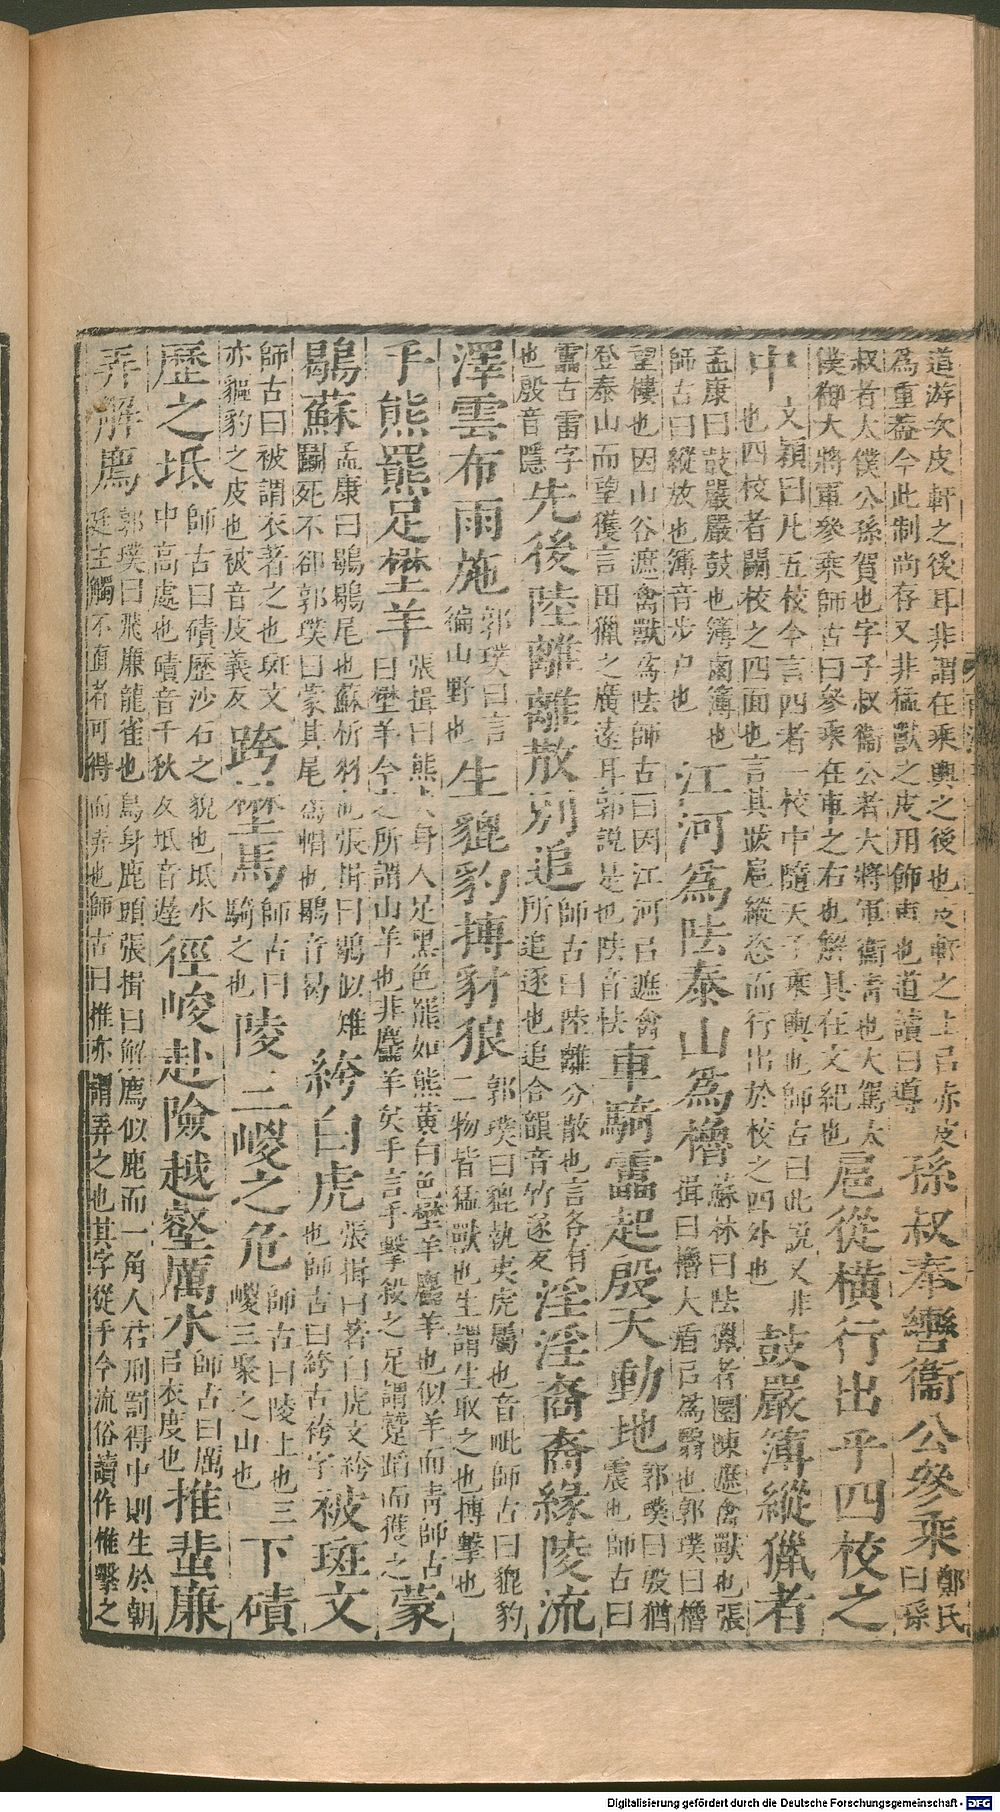 道游次皮軒之後耳非謂在乘輿之後也皮軒之上㠯赤皮爲重蓋今此制尚存又非猛獸之皮用飾車也道讀曰導孫叔奉轡衞公參乘鄭氏曰孫
叔者太僕公孫賀也字子叔衞公者大將軍衞青也大駕太僕御大將軍參乘師古曰參乘在車之右也解具在文紀也扈從橫行出乎四校之
中文穎曰凡五校今言四者一校中隨天子乘輿也師古曰此說又非也四校者闌校之四面也言其跋扈縱恣而行出於校之四外也鼓嚴簿縱獵者
孟康曰鼓嚴嚴鼓也簿鹵簿也師古曰縱放也簿音步戶也江河爲阹泰山爲櫓蘇林曰阹獵者圜陳遮禽獸也張揖曰櫓大盾㠯爲翳也郭璞曰櫓
望樓也因山谷遮禽獸爲阹師古曰因江河㠯遮禽登泰山而望獲言田獵之廣遠耳郭說是也阹音怯車騎靁起殷天動地郭璞曰殷猶震也師古曰
靁古雷字也殷音隱先後陸離離散別追師古曰陸離分散也言各有所追逐也追合韻音竹遂反淫淫裔裔緣陵流
澤雲布雨施郭璞曰言徧山野也生貔豹搏豺狼郭璞曰貔執夷虎屬也音毗師古曰貔豹二物皆猛獸也生謂生取之也搏擊也
手熊羆足壄羊張揖曰熊犬身人足黑色羆如熊黃白色壄羊麢羊也似羊而青師古曰壄羊今之所謂山羊也非麢羊矣手言手擊殺之足謂蹵蹈而獲之蒙
鶡蘇孟康曰鶡鶡尾也蘇析羽也張揖曰鶡似雉鬬死不卻郭璞曰蒙其尾爲帽也鶡音曷絝白虎張揖曰著白虎文絝也師古曰絝古袴字被斑文
師古曰被謂衣著之也斑文亦貙豹之皮也被音皮義反跨壄馬師古曰騎之也陵三嵕之危師古曰陵上也三嵕三聚之山也下磧
歷之坻師古曰磧歷沙石之貌也坻水中高處也磧音千秋反坻音遲徑峻赴險越壑厲水師古曰厲㠯衣度也推蜚廉
弄解廌郭璞曰飛廉龍雀也鳥身鹿頭張揖曰解廌似鹿而一角人君刑罰得中則生於朝廷主觸不直者可得而弄也師古曰推亦謂弄之也其字從手今流俗讀作惟擊之
Digitalisierung gefördert durch die Deutsche Forschungsgemeinschaft - DFG